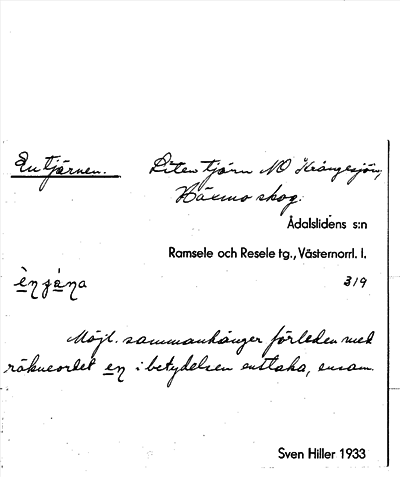 En tjärnen. Liten tjärn NO Krångesjön,
Häxmo skog.
Ådalslidens s:n
Ramsele och Resele tg., Västernorrl. l.
319
Möjl. sammanhänger förleden med
räkneordet en i betydelsen enstaka, ensam.
Sven Hiller 1933